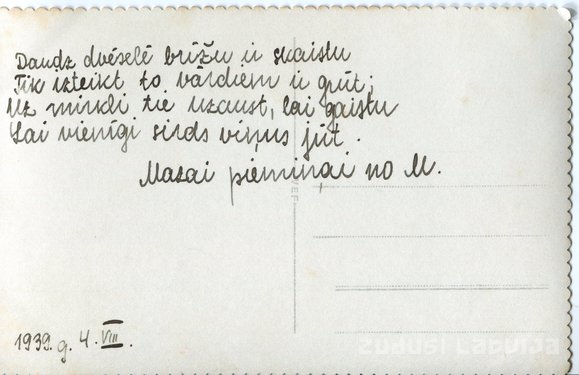 Daudz dvēselē brīžu ir skaistu
Tik izteikt to vārdiem ir grūt;
Uz mirkli tie uzaust, lai gaistu
Lai vienīgi sirds viņus jūt.
Mazai piemiņai no M.
1939. g. 4. VIII.
zudusi Latvija